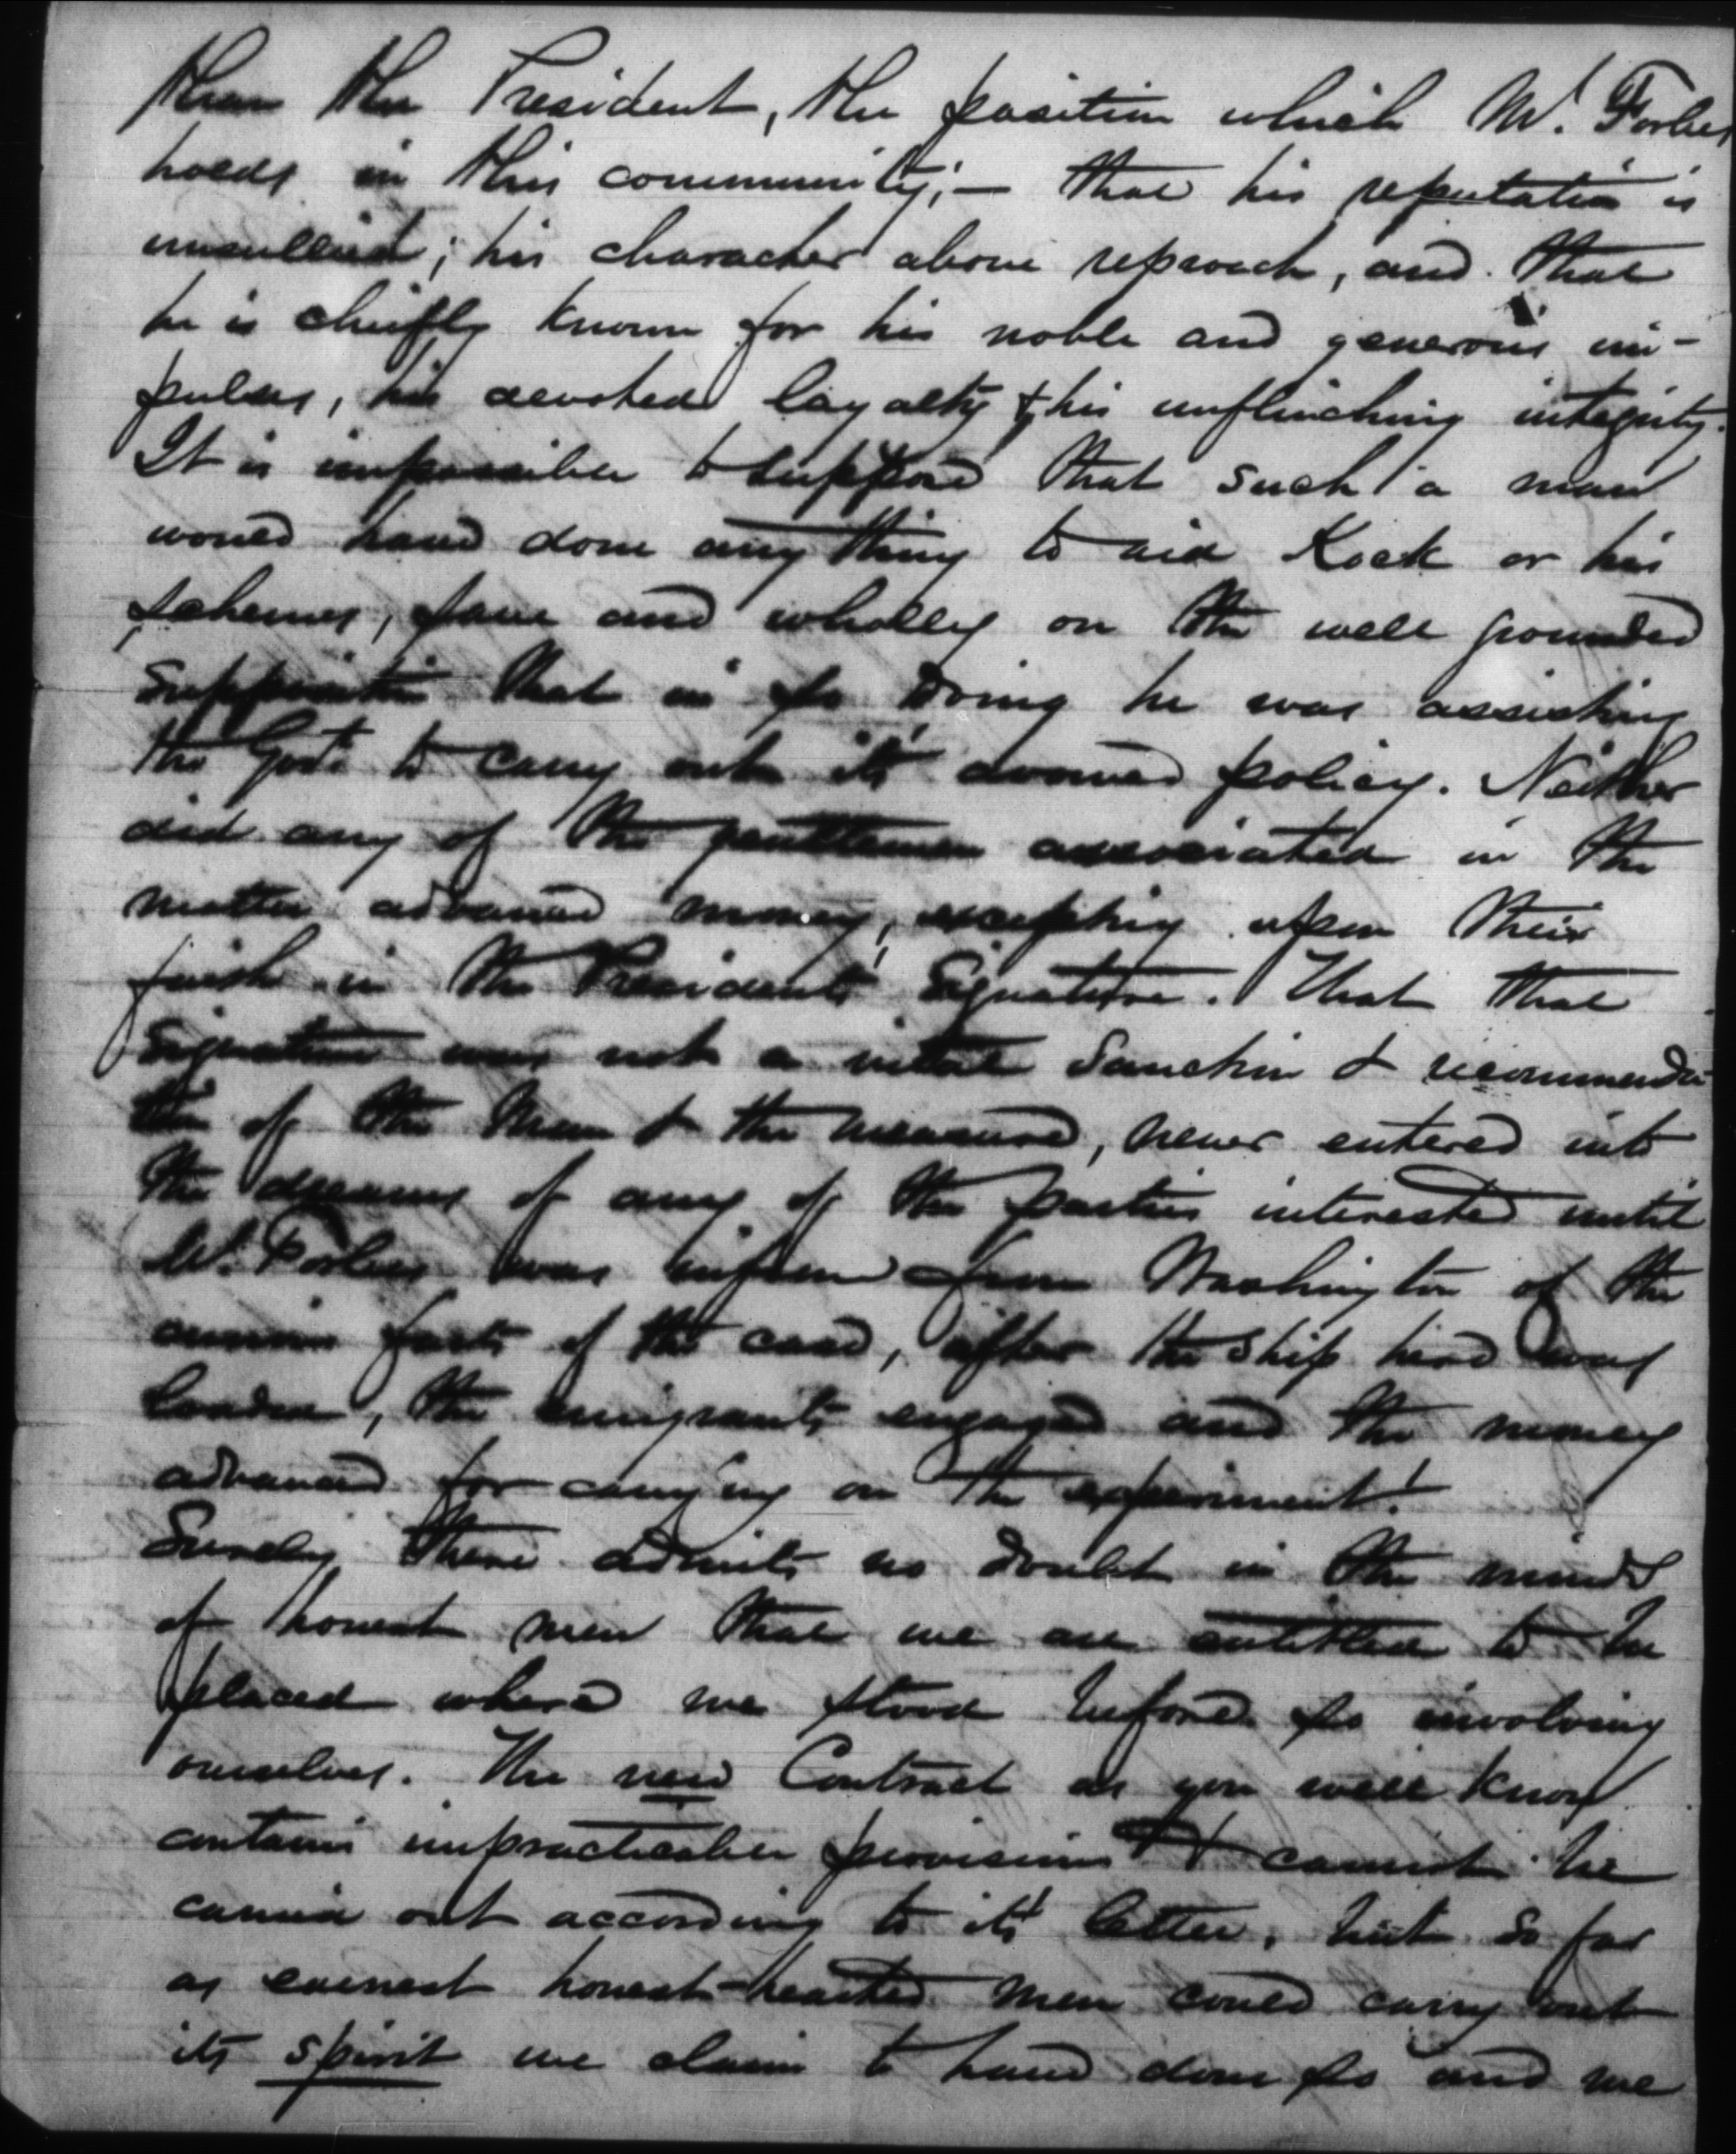 than the President, the position which Mr. Forbes
holds in this community; — that his reputation is
unsullied; his character above reproach, and that
he is chiefly known for his noble and generous im-
pulses, his devoted loyalty & his unflinching integrity.
It is impossible to suppose that such a man
would have done any thing to aid Kock or his
schemes, save and wholly on the well grounded
supposition that in so doing he was assisting
the Govt. to carry out it's avowed policy. Neither
did any of the gentlemen associated in the
matter advance money, excepting upon their
faith in the President's Signature. That that
Signature was not a virtual Sanction & recommenda-
tion of the Man & the measure, never entered into
the dreams of any of the parties interested until
Mr. Forbes was informed from Washington of the
facts of the case, after the ship hired was
loaded, the emigrants engaged and the money
advanced for carrying on the experiment!
Surely there admits no doubt in the minds
of honest men that we are entitled to be
placed where we stood before so involving
ourselves. The new Contract as you well know
contains impracticable provisions & cannot be
carried out according to it's letter, but so far
as earnest honest-hearted men could carry out
its spirit we claim to have done so and we